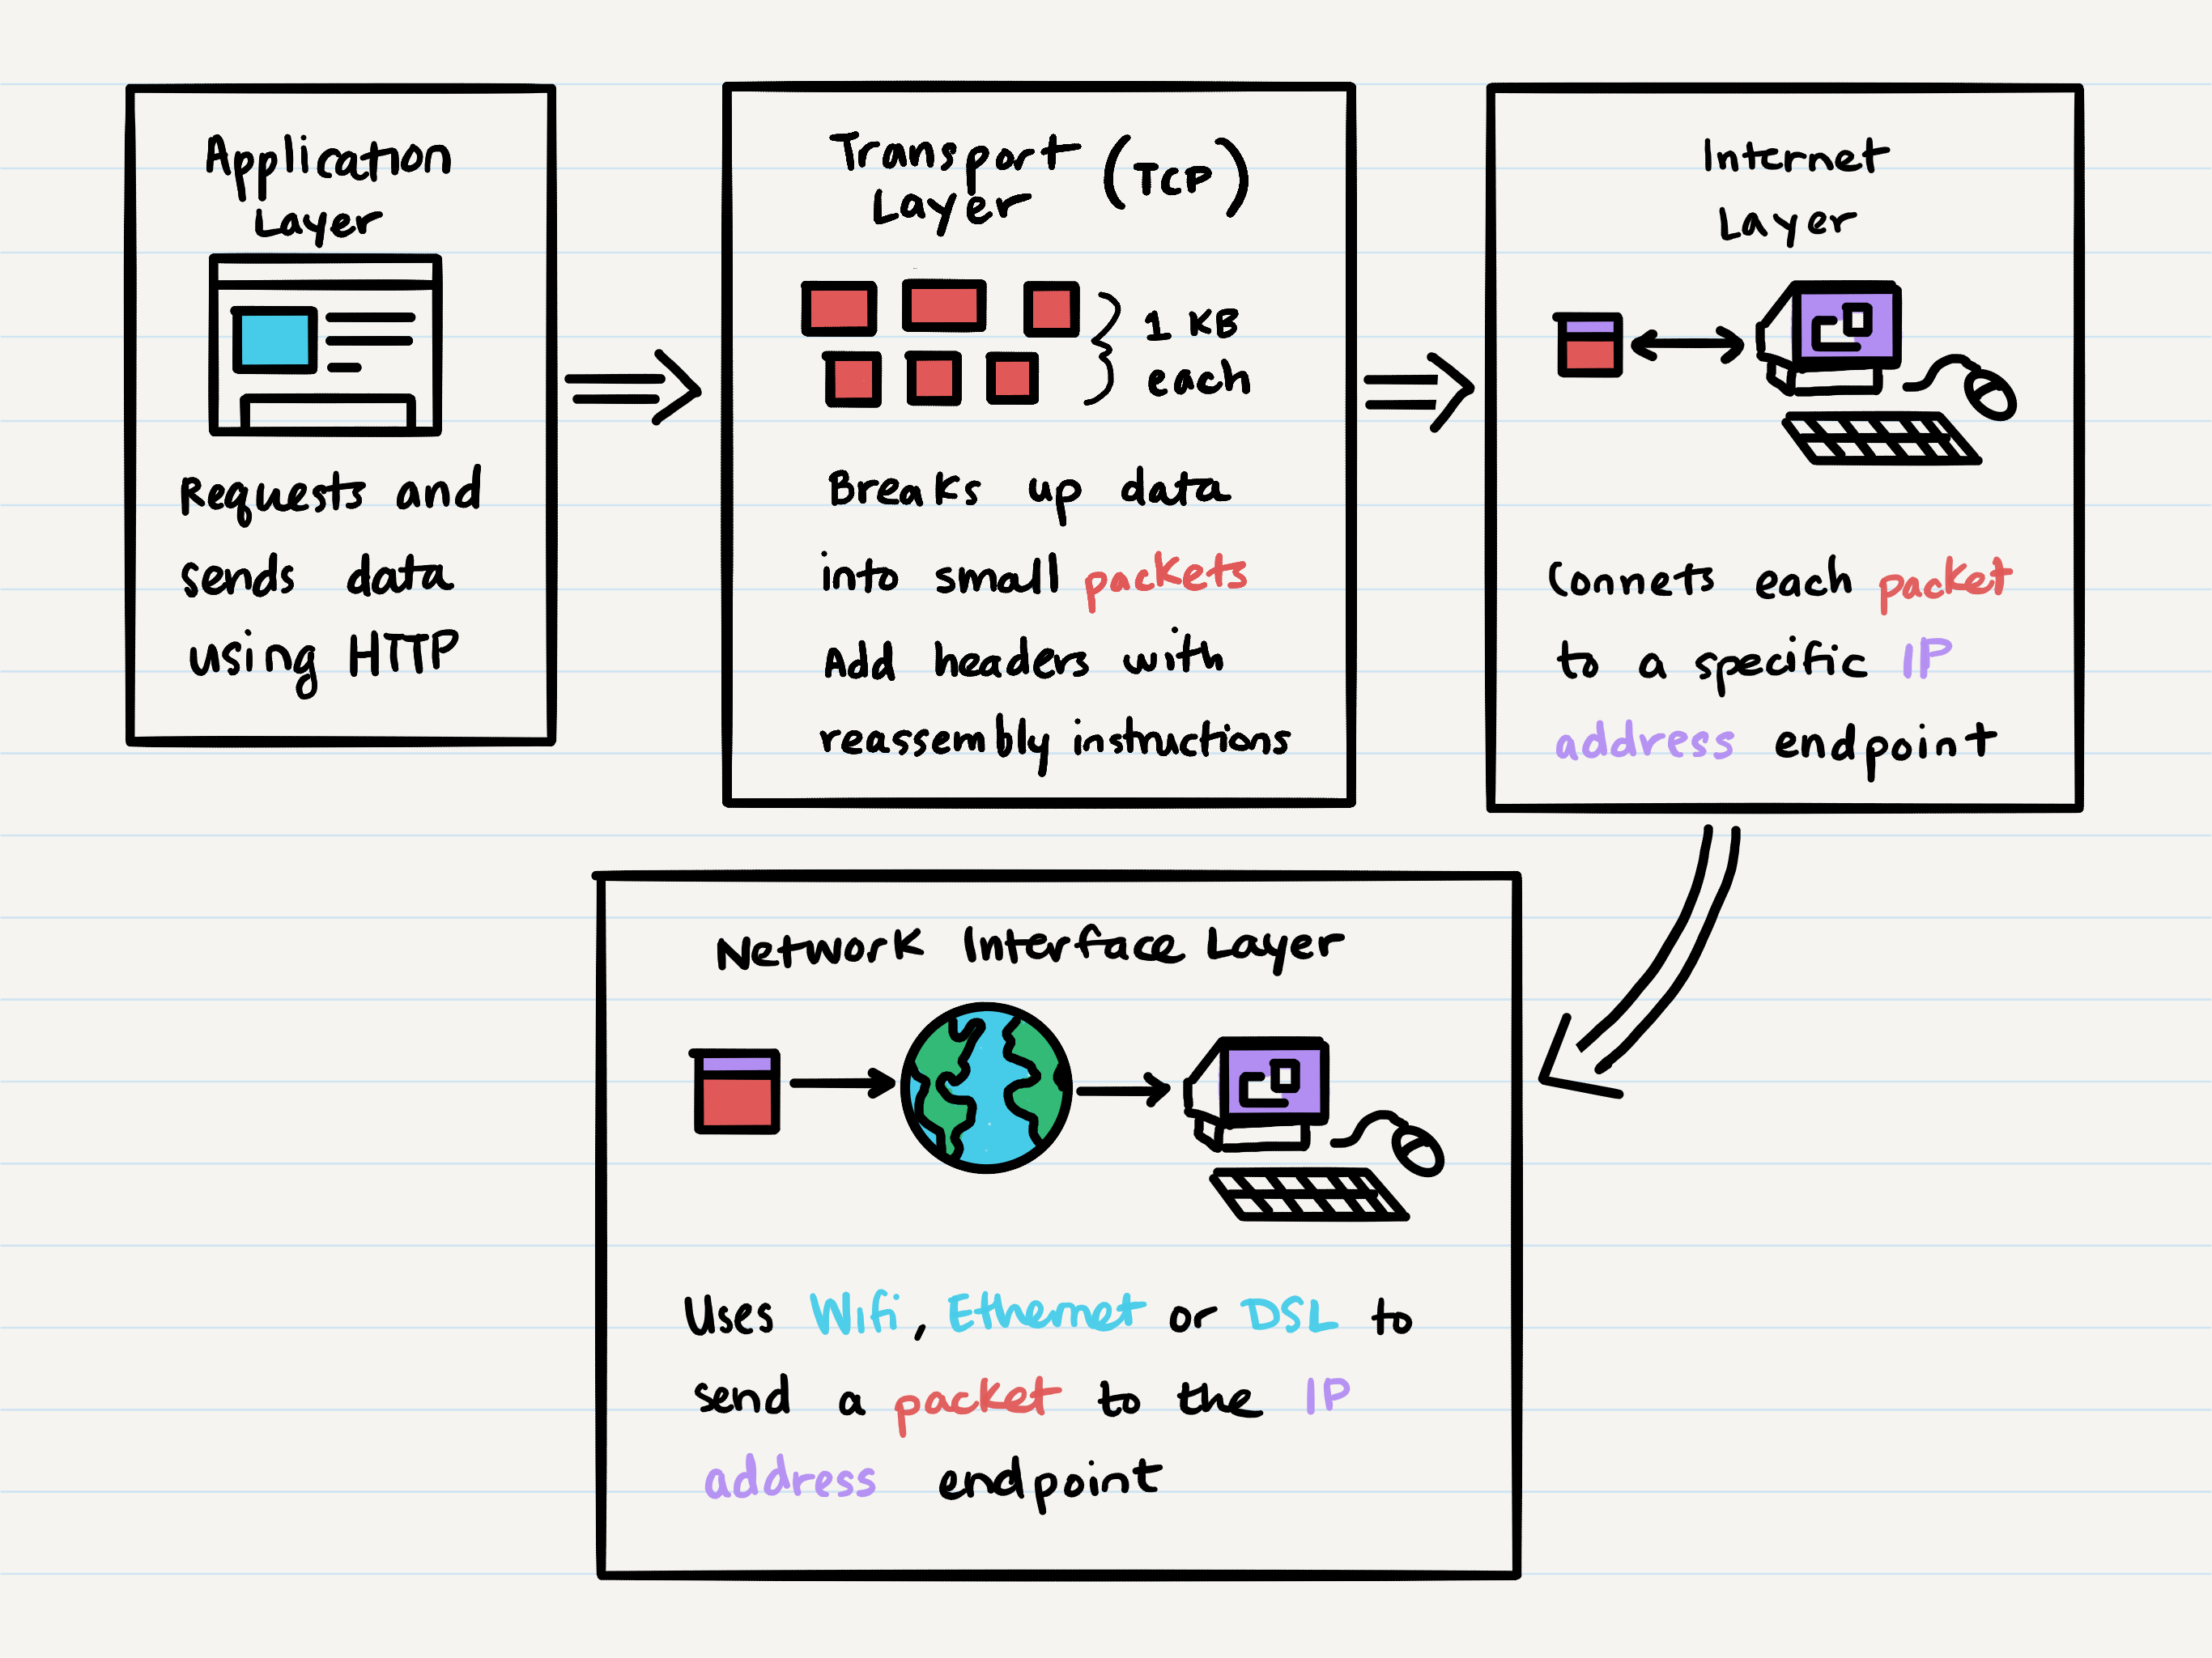 Application
Layer
Requests and
sends data
using HTTP
Transport (TCP)
Layer
1 KB
each
Breaks up data
into small packets
Add headers with
reassembly instructions
Internet
Layer
Connets each packet
to a specific IP
address endpoint
Network Interface Layer
Uses Wifi, Ethernet or DSL to
send a packet to the IP
address endpoint